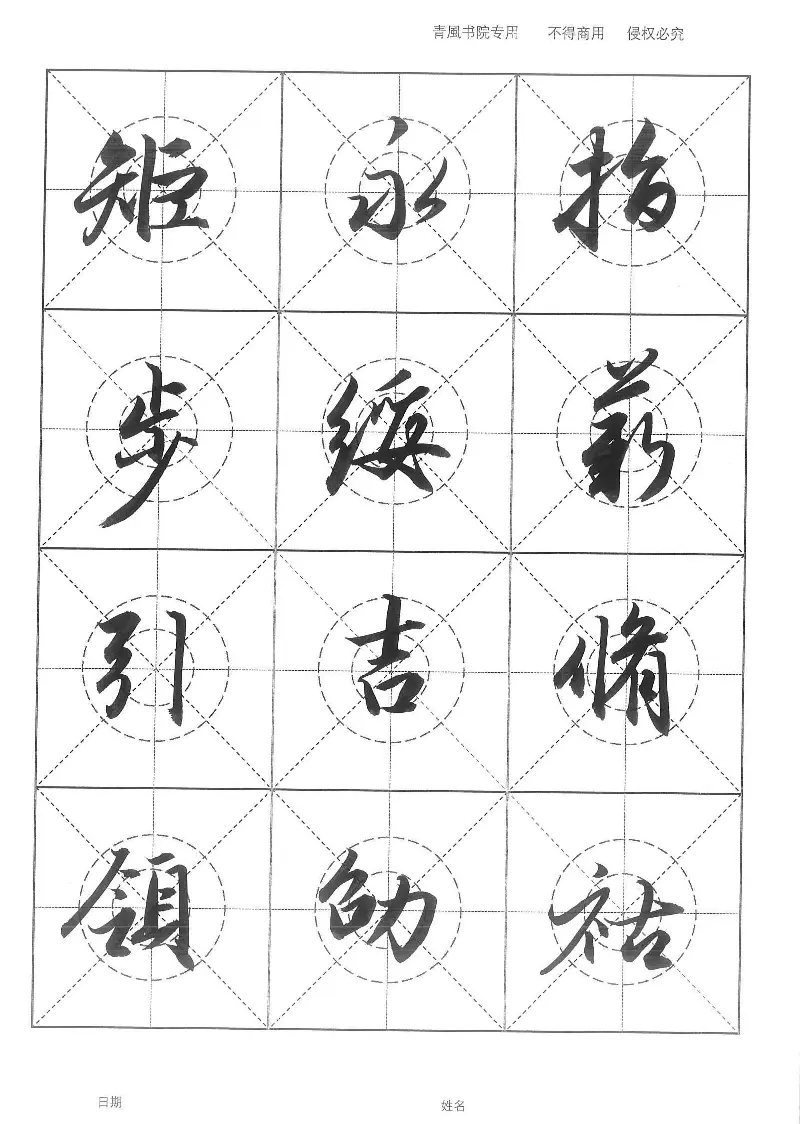 青風书院专用 不得商用 侵权必究
指薪脩祜
永綏吉劭
矩步引領
日期 姓名